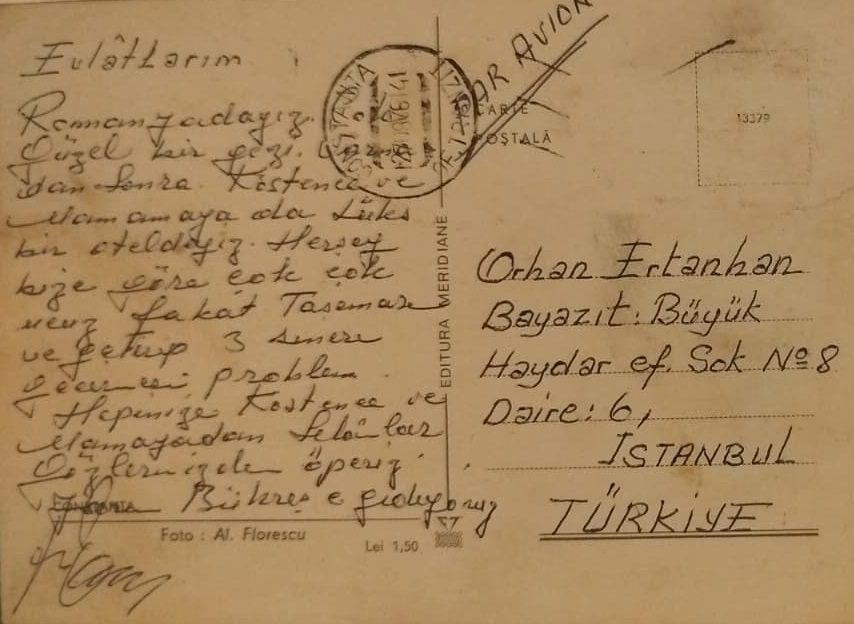 Evlâtlarım
Romanyadayız.
Güzel bir gezi.
dan Sonra. Köstence ve
Mamamaya da Lüks
bir oteldeyiz. Herşey
bize göre çok çok
ucuz fakat Taşıması
ve getirip 3 sınırı
problem
Hepinize Köstence ve
Mamayadan Selâmlar
Gözlerinizden öperiz
Bükreş e gidiyoruz
CONSTANTA
Foto : Al. Florescu
Lei 1,50
EDITURA MERIDIANE
CONSTANTA
PAR AVION
CARTE
POȘTALĂ
13379
Orhan Ertanhan
Bayazıt: Büyük
Haydar ef. Sok Nº 8
Daire: 6,
İSTANBUL
TÜRKİYE